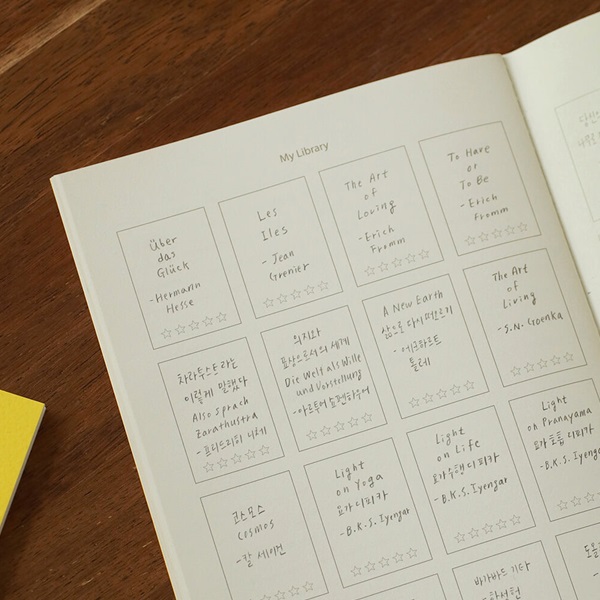 My Library
Über
das
Glück
-Hermann
Hesse
Les
Iles
- Jean
Grenier
The Art
of
Loving
- Erich
Fromm
To Have
or
To Be
- Erich
Fromm
차라투스트라는
이렇게 말했다
Also sprach
Zarathustra
- 프리드리히 니체
의지와
표상으로서의 세계
Die Welt als Wille
und Vorstellung
-아르투어 쇼펜하우어
A New Earth
삶으로 다시 떠오르기
- 에크하르트
톨레
The Art
of
Living
- S.N. Goenka
코스모스
Cosmos
- 칼 세이건
Light
on Yoga
요가 디피카
-B.K.S. Iyengar
Light
on Life
요가 수행 디피카
-B.K.S. Iyengar
Light
on Pranayama
요가 호흡 디피카
-B.K.S. Iyenga
바가바드 기타